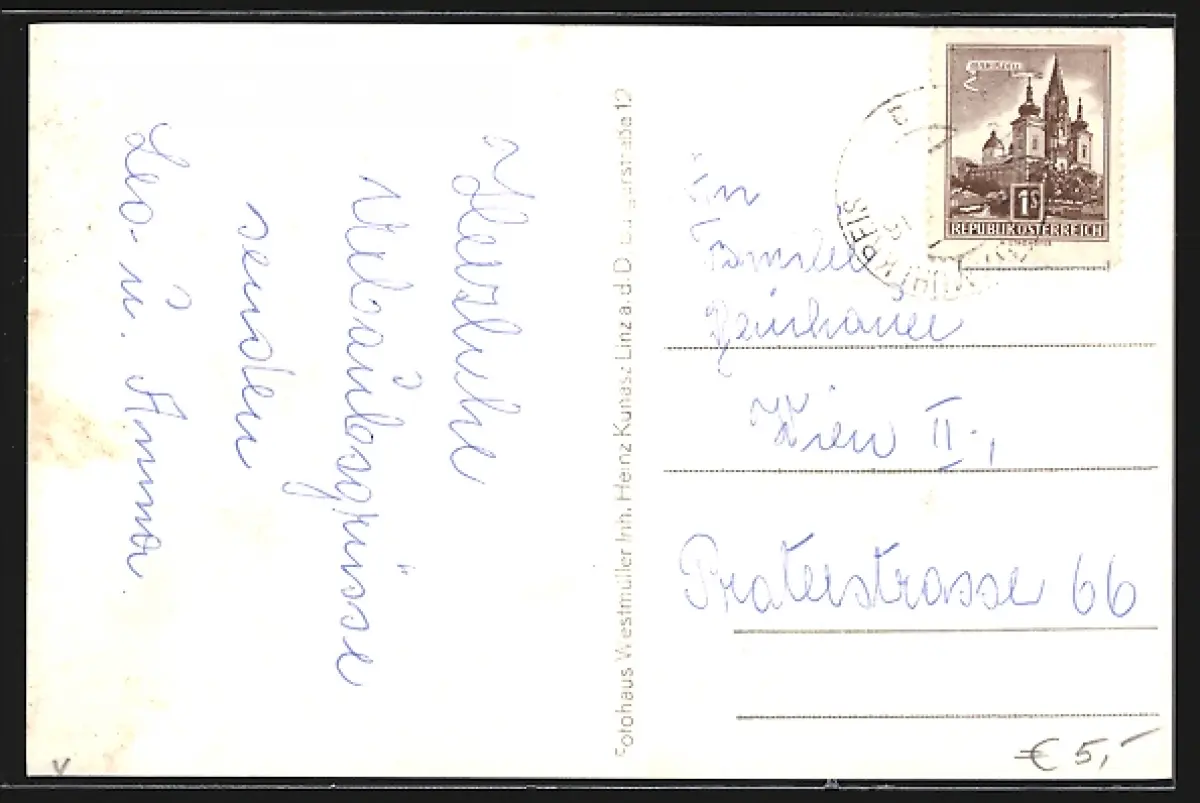 Herzliche
Urlaubsgrüsse
senden
Leo u. Anna
Fotohaus Westmüller Inh. Heinz Kunasz Linz a. d. D.
12
MARIAZELL
1S
REPUBLIK ÖSTERREICH
An
Familie
Wien II.,
Praterstrasse 66
€ 5,-